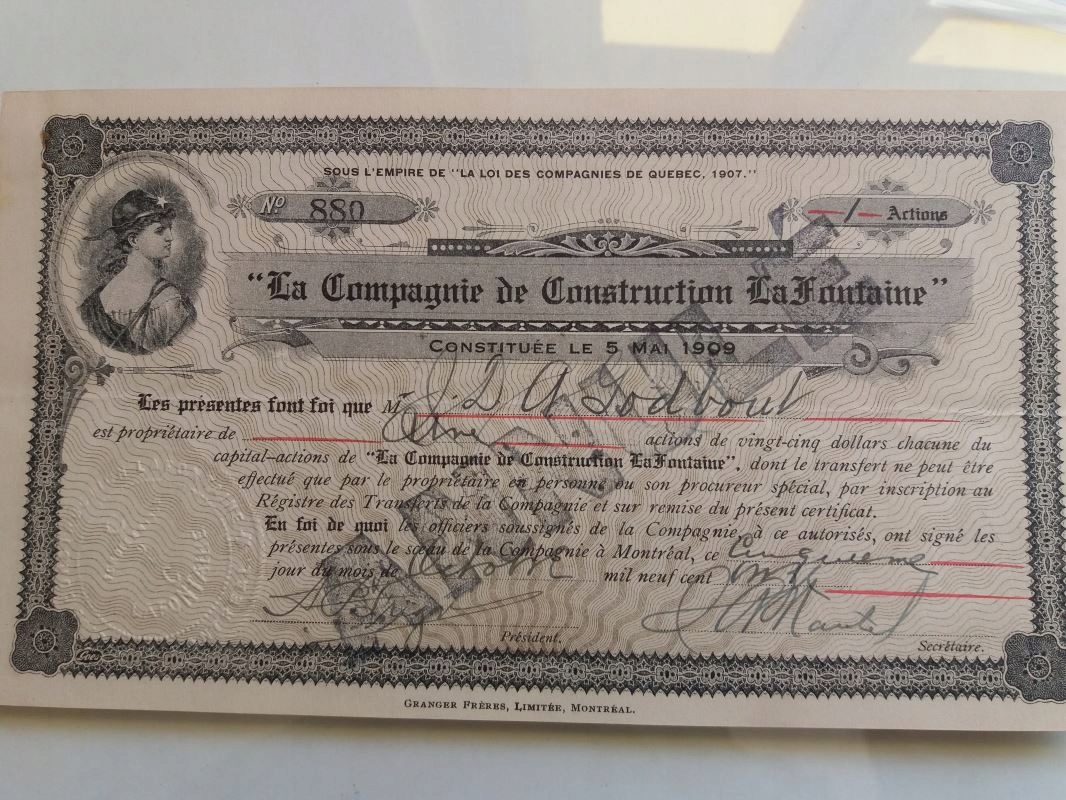 SOUS L'EMPIRE DE "LA LOI DES COMPAGNIES DE QUEBEC, 1907."
No 880
1 Actions
"La Compagnie de Construction LaFontaine"
CONSTITUÉE LE 5 MAI 1909
Les présentes font foi que M A Godbout
est propriétaire de Une actions de vingt-cinq dollars chacune du
capital-actions de "La Compagnie de Construction LaFontaine", dont le transfert ne peut être
effectué que par le propriétaire en personne ou son procureur spécial, par inscription au
Régistre des Transferts de la Compagnie et sur remise du présent certificat.
En foi de quoi les officiers soussignés de la Compagnie, à ce autorisés, ont signé les
présentes sous le sceau de la Compagnie à Montréal, ce Cinquieme
jour du mois de Octobre mil neuf cent
Président.
Secrétaire.
GRANGER FRÈRES, LIMITÉE, MONTRÉAL.